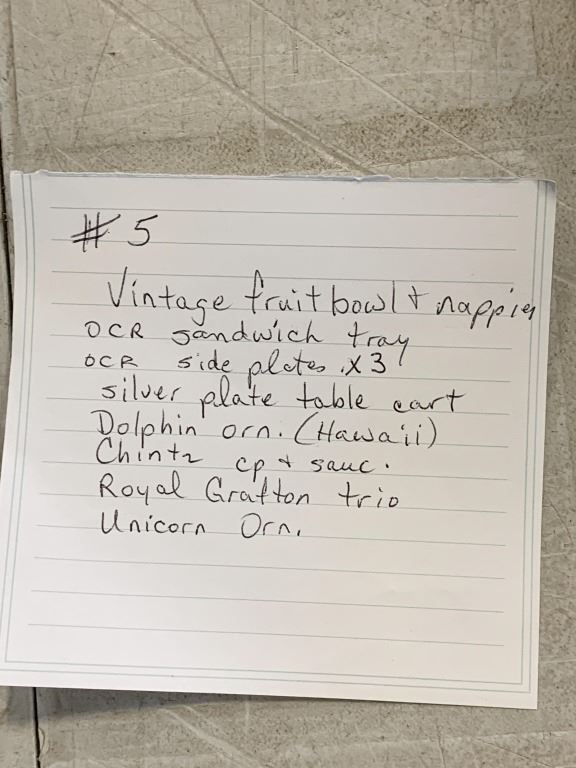 # 5
Vintage fruit bowl + nappies
OCR sandwich tray
OCR side plates x3
silver plate table cart
Dolphin orn. (Hawaii)
Chintz cp + sauc.
Royal Grafton trio
Unicorn Orn.